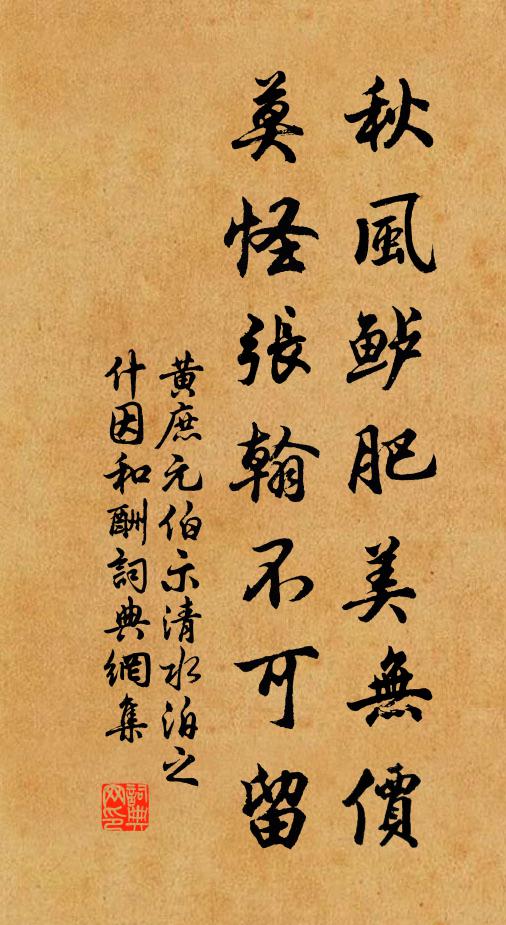 秋風鲈肥美無價
莫怪張翰不可留
黄庶元伯示清水泊之
什因和酬詞典網集
詞典网印